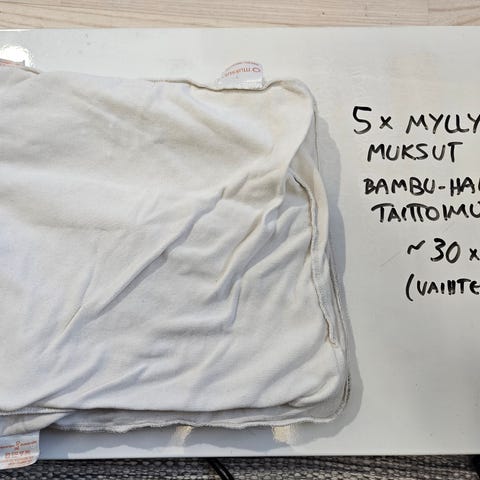 5 x MYLLY
MUKSUT
BAMBU-HA
TAITTOIMU
~ 30 x
(VAIHTE
muksut